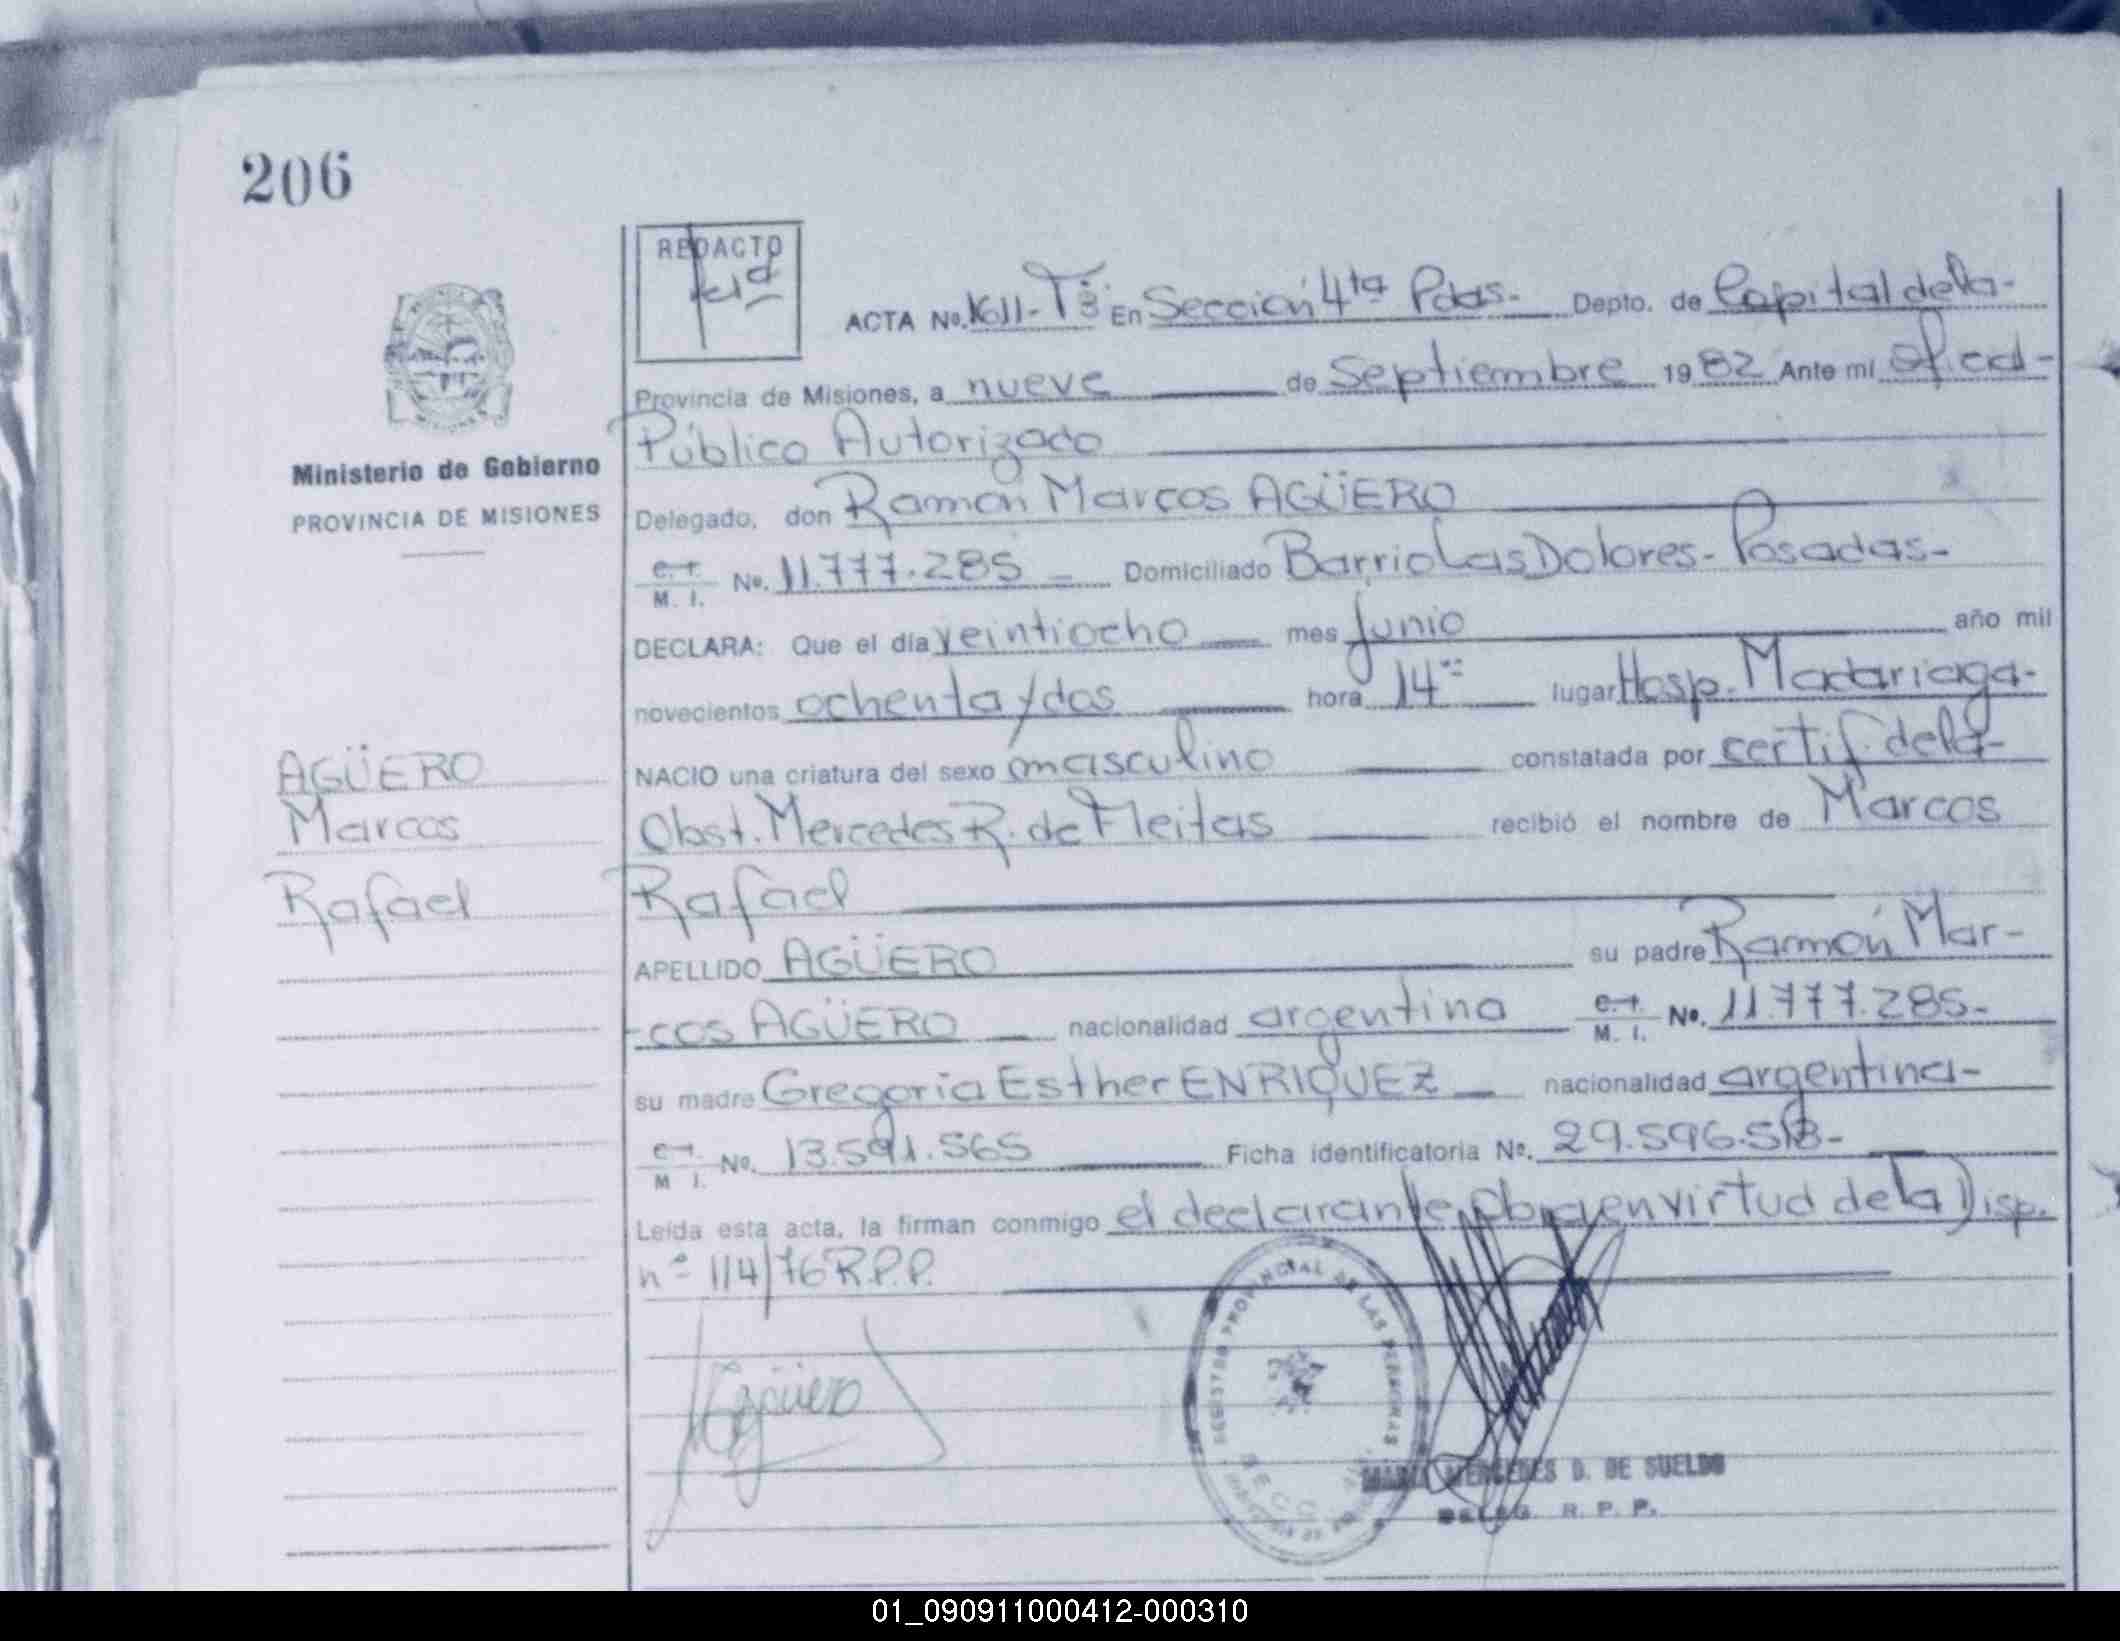 206
REDACTO
ACTA No. 1611-Tº3º En Sección 4ta Pdas.- Depto. de Capital de la-
Provincia de Misiones, a nueve de Septiembre 1982 Ante mí Oficial-
Público Autorizado
Ministerio de Gobierno
PROVINCIA DE MISIONES
Delegado, don Ramón Marcos AGÜERO
C.I. M. I. No. 11.777.285 Domiciliado Barrio Las Dolores- Posadas-
DECLARA: Que el día veintiocho mes Junio año mil
novecientos ochenta y dos hora 14 lugar Hosp. Madariaga-
AGÜERO
Marcos
Rafael
NACIO una criatura del sexo masculino constatada por certif. de la-
Obst. Mercedes R. de Fleitas recibió el nombre de Marcos
Rafael
APELLIDO AGÜERO su padre Ramón Mar-
-cos AGÜERO nacionalidad argentino C.I. M. I. No. 11.777.285-
su madre Gregoria Esther ENRIQUEZ nacionalidad argentina-
C.I. M I. No. 13.591.565 Ficha identificatoria No. 29.596.513-
Leída esta acta, la firman conmigo el declarante, obra en virtud de la Disp.
nº 114/76 R.P.P.
Agüero
REGISTRO PROVINCIAL DE LAS PERSONAS
MARIA MERCEDES D. DE SUELDO
DELEG. R. P. P.
01_090911000412-000310